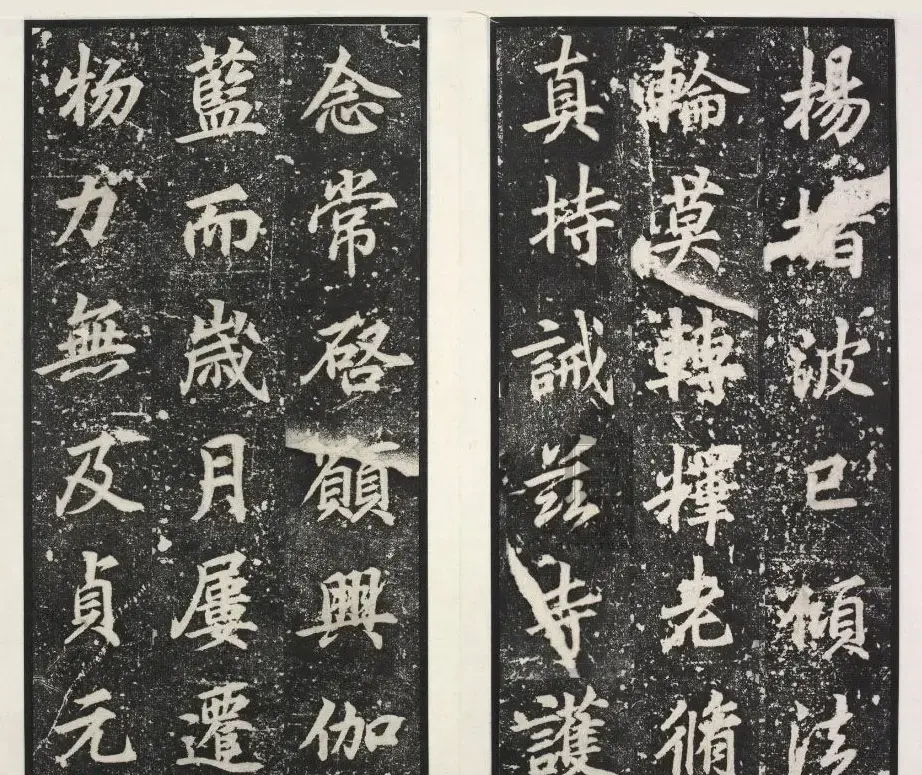 楊波已傾法
輪莫轉釋老脩
真持誡茲寺護
念常啓願興伽
藍而歲月屢遷
物力無及貞元